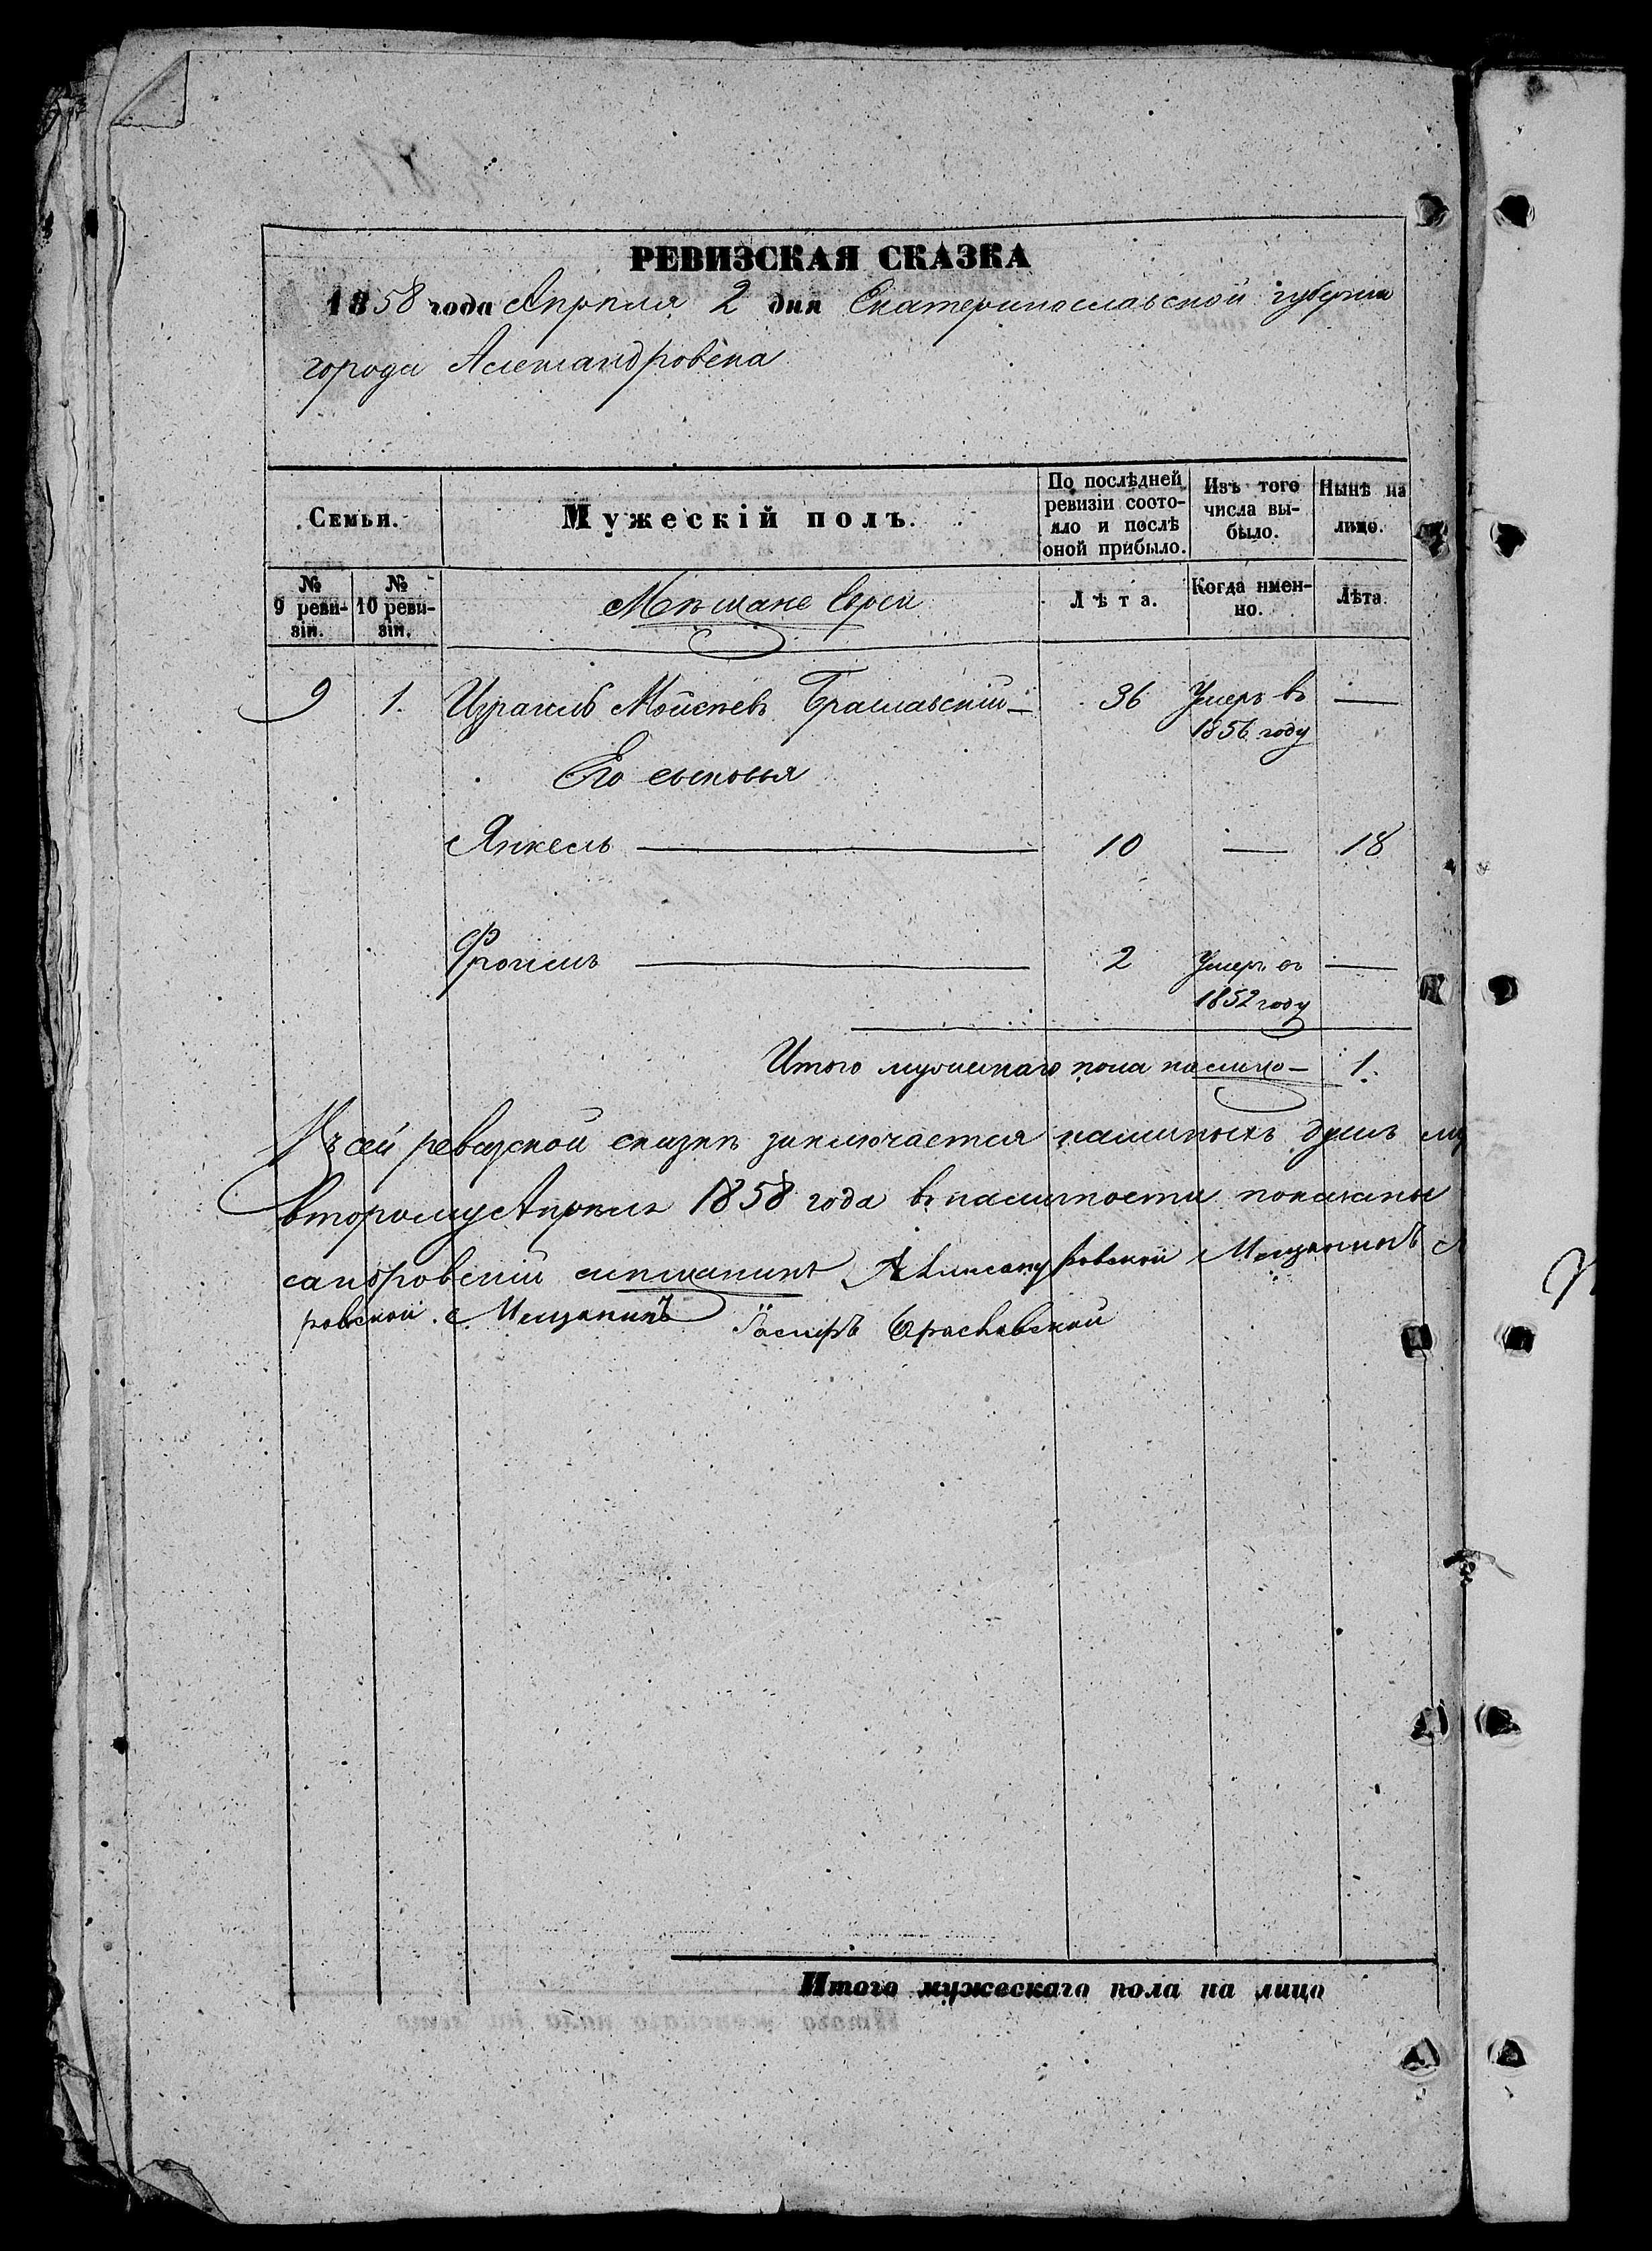 РЕВИЗСКАЯ СКАЗКА
1858 года Апрѣля 2 дня Екатеринославской губерніи
города Александровска
Семьи.
Мужескій полъ.
По послѣдней ревизіи состояло и послѣ оной прибыло.
Изъ того числа выбыло.
Нынѣ на лицо.
№ 9 ревизіи.
№ 10 ревизіи.
Мѣщане Евреи
Лѣта.
Когда именно.
Лѣта.
9 1. Израиль Мойсѣевъ Браславскій 36 Умеръ въ —
1856 году
Его сыновья
Янкель — 10 — 18
Фроимъ — 2 Умеръ въ —
1852 году
Итого мужескаго пола налицо — 1.
Въ сей ревизской сказкѣ заключается наличныхъ душъ му
второму Апрѣля 1858 года въ наличности показаны
сандровскій мѣщанинъ Александровской Мещанинъ
ровской Мещанинъ Браславской
Итого мужескаго пола на лицо